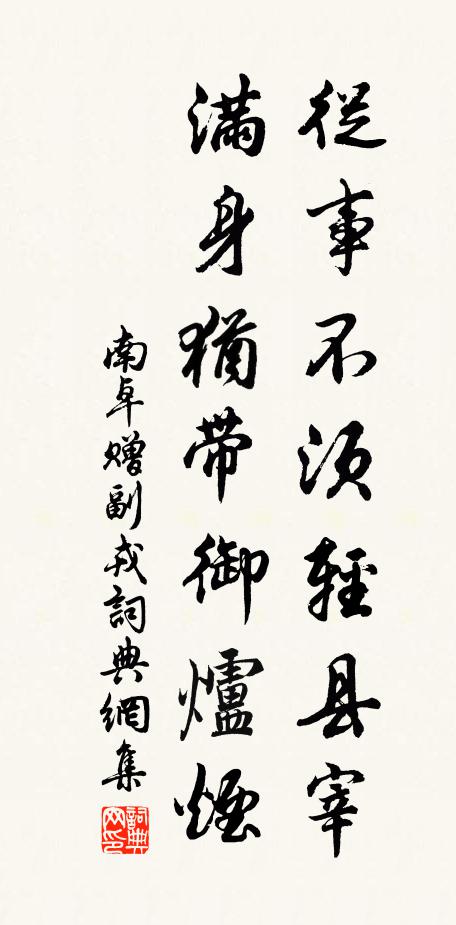 從事不須輕县宰
滿身猶帶御爐煙
南卓贈副戎詞典網集
詞典网印